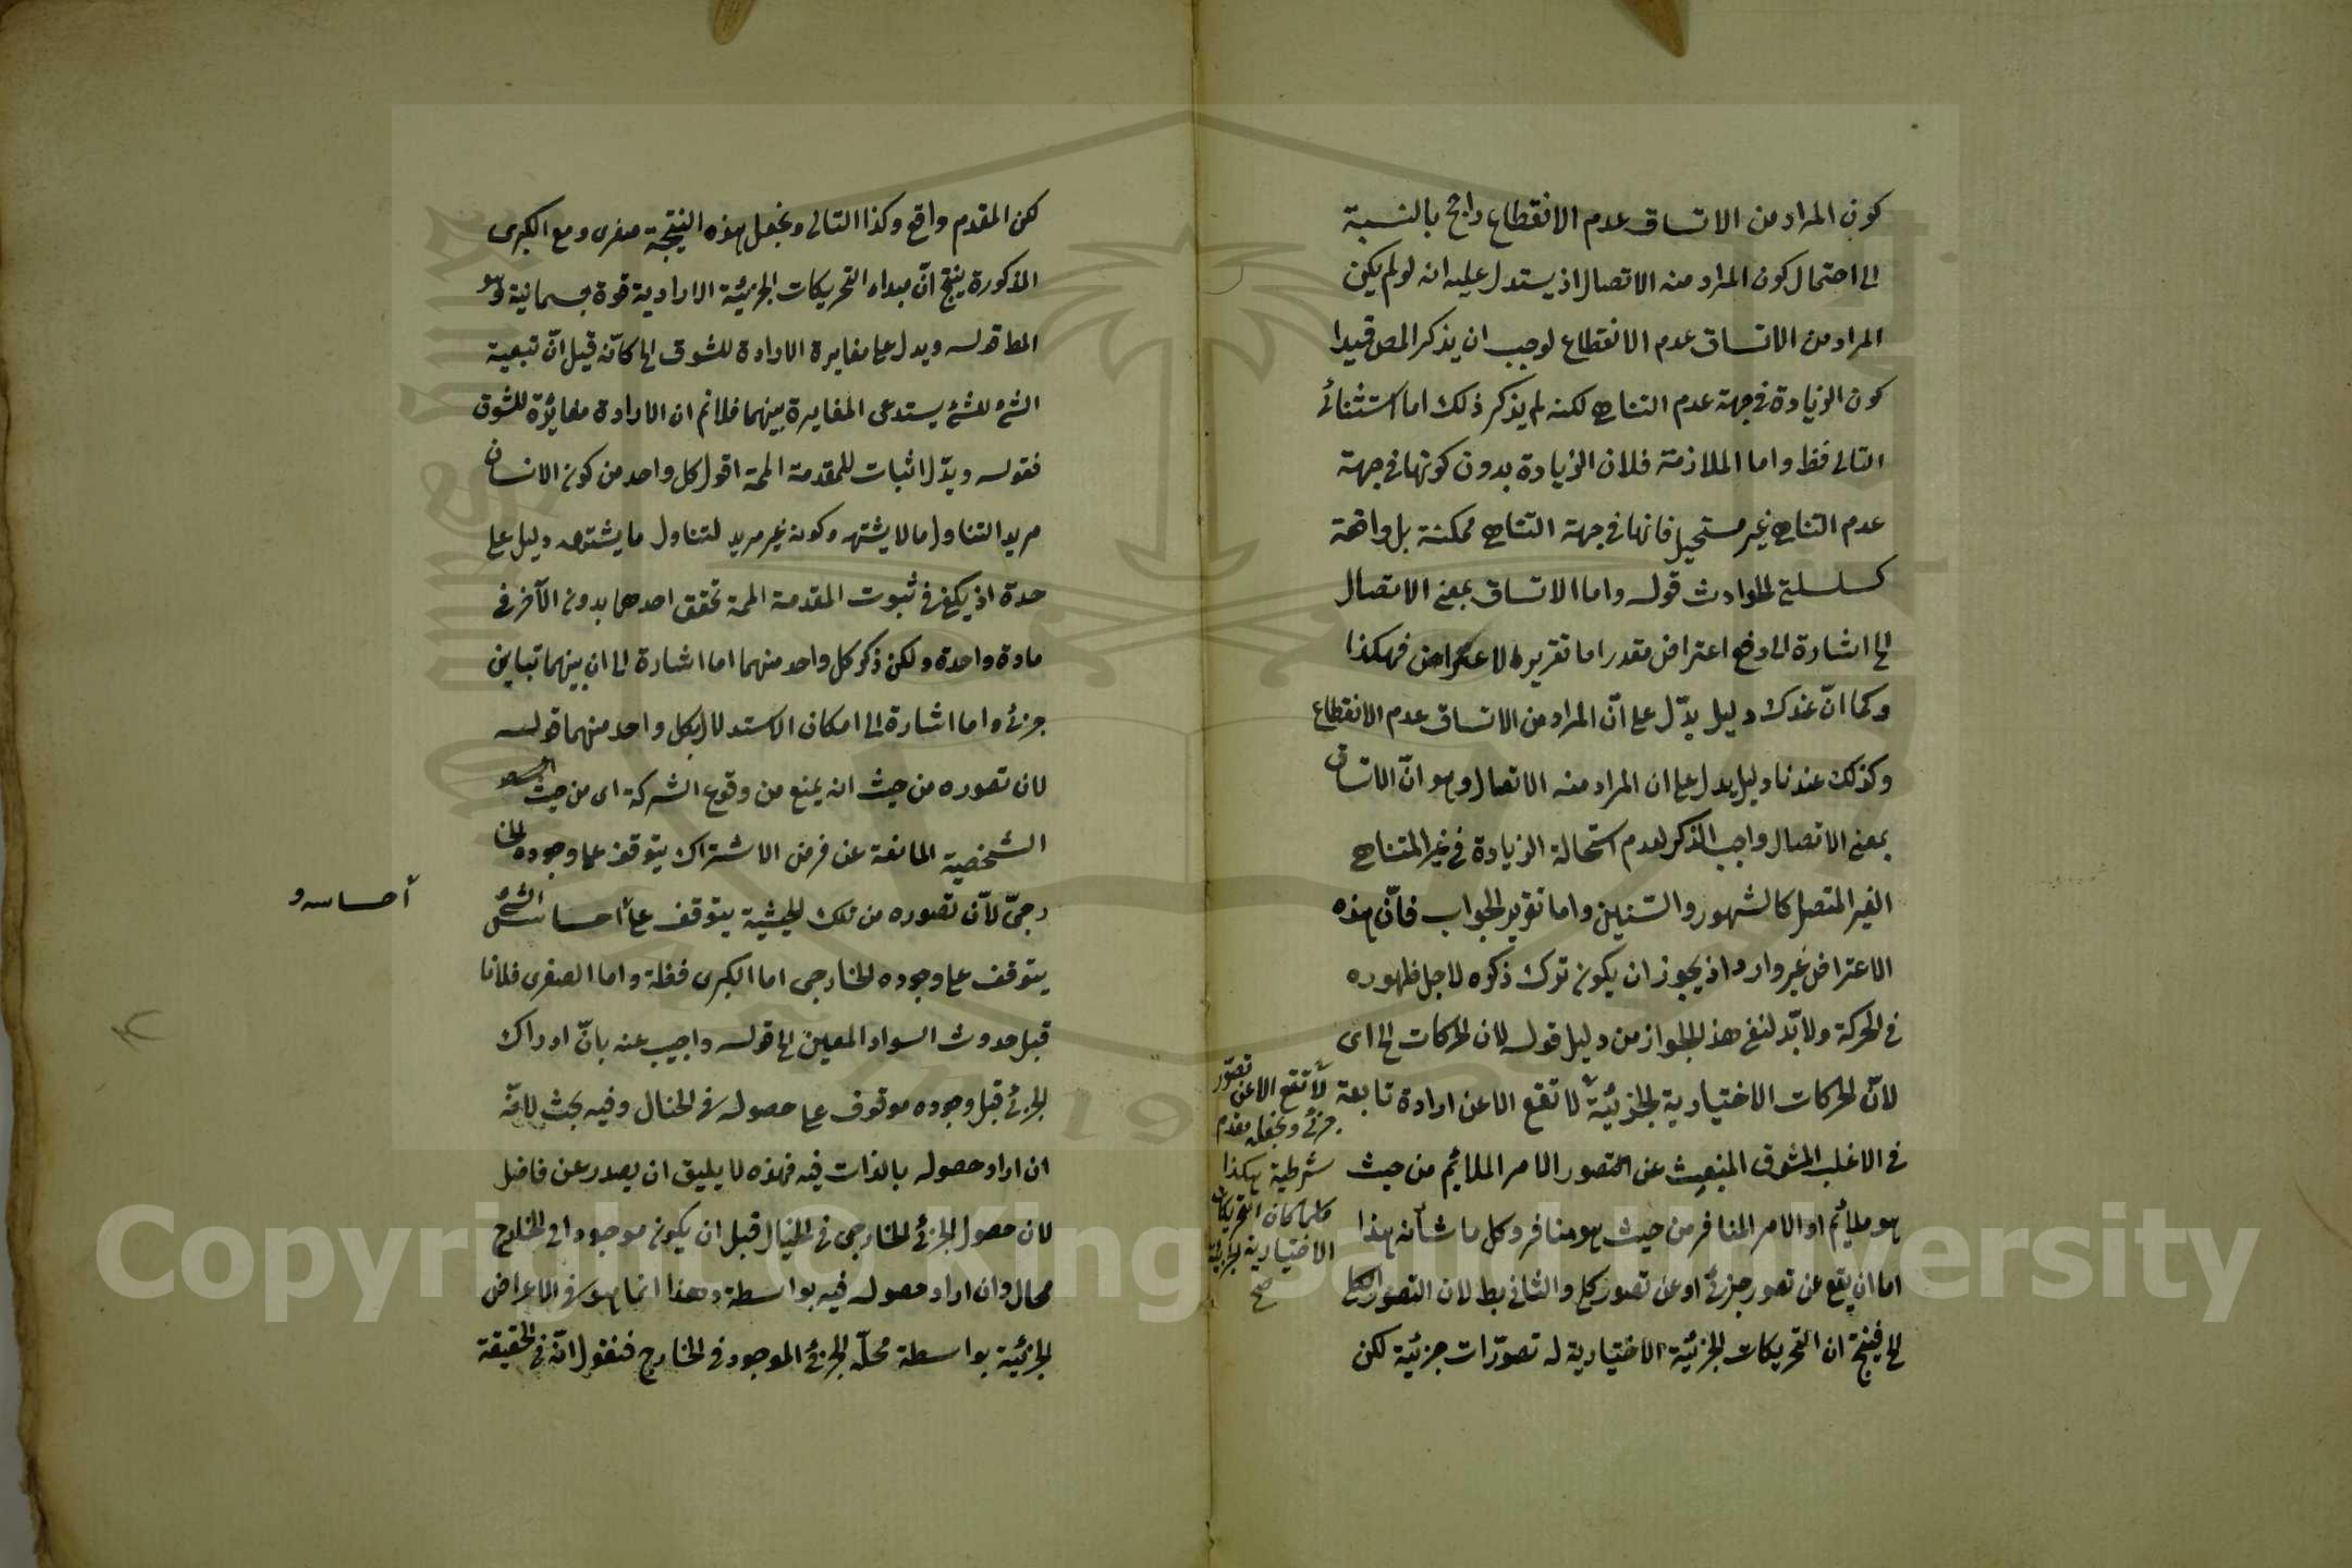 كون المراد من الاتساق عدم الانقطاع راجح بالنسبة
الى احتمال كون المراد منه الاتصال اذ يستدل عليه انه لو لم يكن
المراد من الاتساق عدم الانقطاع لوجب ان يذكر المص قيدا
كون الزيادة في جهة عدم التناهي لكنه لم يذكر ذلك اما استثنائ
التالى فظ واما الملازمة فلان الزيادة بدون كونها في جهة
عدم التناهي غير مستحيل فانها في جهة التناهي ممكنة بل واقعة
كسلسلتي الحوادث قوله واما الاتساق بمعنى الاتصال
الخ اشارة الى دفع اعتراض مقدر اما تقرير الاعتراض فهكذا
وكما انّ عندك دليل يدّل على انّ المراد من الاتساق عدم الانقطاع
وكذلك عندنا دليل يدل على ان المراد منه الاتصال وهو انّ الاتساق
بمعنى الاتصال واجب الذكر لعدم استحالة الزيادة في غير المتناهي
الغير المتصل كالشهور والسّنين واما تقرير الجواب فانّ هذه
الاعتراض غير وارد اذ يجوز ان يكون ترك ذكره لاجل ظهوره
في الحركة ولا بّد لنفى هذ الجواز من دليل قوله لان الحركات الخ اى
لانّ الحركات الاختيارية الجزئية لا تقع الا عن ارادة تابعة
في الاغلب الشوق المنبعث عن التصور الامر الملائم من حيث
هو ملائم او الامر المنافر من حيث هو منافر وكل ما شأنه هذا
اما ان يقع عن تصور جزئى او عن تصور كلى والثانى بط لان التصور الكلى
الخ فينتج ان التحريكات الجزئية الاختيارية له تصوّرات جزئية لكن
لا تقع الا عن تصوّر
جزئى ونجعله مقدم
شرطية هكذا
كلما كان التحريكات
الاختيارية الجزئية
صح
لكن المقدم واقع وكذا التالى ونجعل هذه النتيجة صغرى ومع الكبرى
المذكورة ينتج انّ مبداء التحريكات الجزئية الارادية قوة جسمانية وهو
المط قوله ويدل على مغايرة الارادة للشوق الخ كانّه قيل انّ تبعية
الشئ للشئ يستدعى المغايرة بينهما فلانم ان الارادة مغايرة للشوق
فقوله ويدّل اثبات للمقدمة المم اقول كل واحد من كون الانسان
مريد التناول ما لا يشتهيه وكونه غير مريد لتناول ما يشتهيه دليل على
حدة اذ يكفى في ثبوت المقدمة المم تحقق احدهما بدون الآخر في
مادة واحدة ولكن ذكر كل واحد منهما اما اشارة الى ان بينهما تباين
جزئ واما اشارة الى امكان الاستدلال بكل واحد منهما قوله
لان تصوره من حيث انه يمنع من وقوع الشركة اى من حيث
الشخصية المانعة عن فرض الاشتراك يتوقف على وجوده الخا
رجىّ لانّ تصوره من تلك الحيثية يتوقف على احساس الشئ
احساسه و
يتوقف على وجوده الخارجى اما الكبرى فظة واما الصغرى فلانا
قبل حدوث السواد المعين الخ قوله واجيب عنه بانّ ادراك
الجزئى قبل وجوده موقوف على حصوله في الخيال وفيه بحث لانّه
ان اراد حصوله بالذات فيه فهذه لا يليق ان يصدر عن فاضل
لان حصول الجزئى الخارجى في الخيال قبل ان يكون موجودا في الخارج
محال وان اراد حصوله فيه بواسطة وهذا انما هو في الاعراض
الجزئية بواسطة محلّه الجزئى الموجود في الخارج فنقول انّه في الحقيقة
Copyright © King Saud University